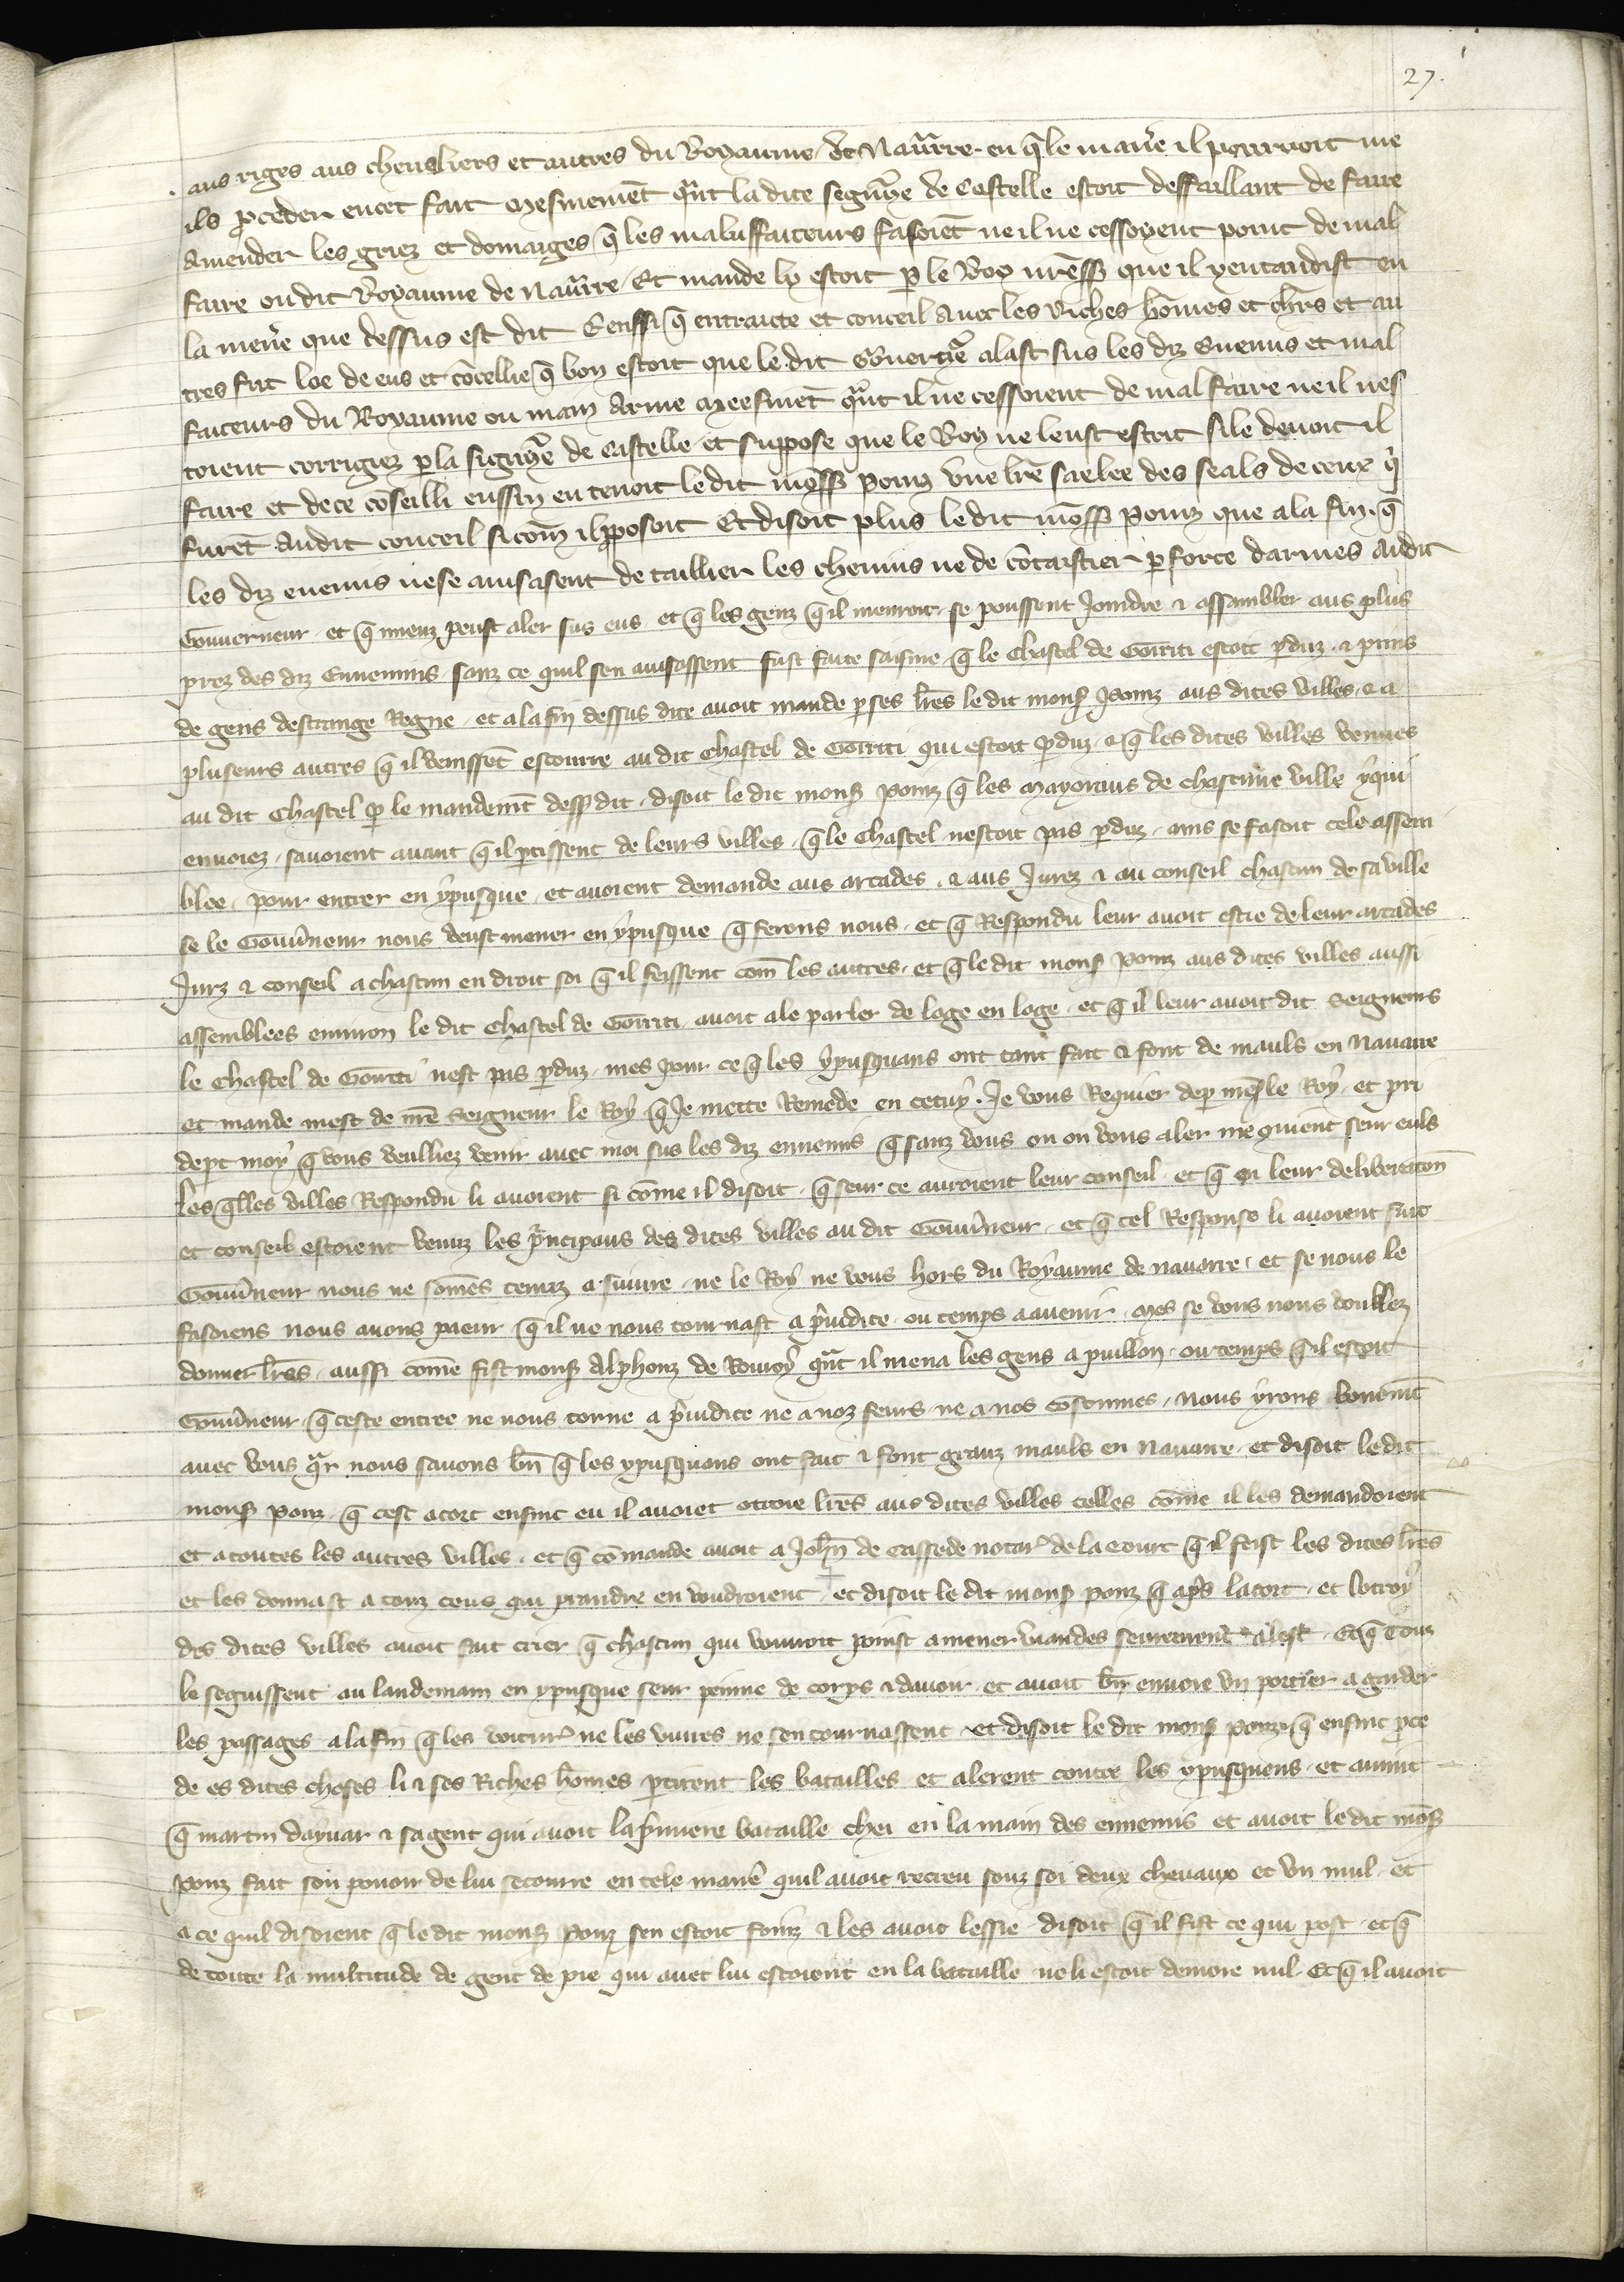 27.
aus riges aus cheualiers et autres du Royaume de Nauarre en q̃le manr̃e il pourroit me
ils ꝓceder encet fait mesmemẽt q̃nt ladite segnrie de Castelle estoit deffaillant de faire
Amender les griez et domaiges q̃ les malueffaiteurs fasoiẽt ne il ne cessoyent point de mal
faire ou dit Royaume de Nauarre Et mande ly estoit ꝑ le Roy nr̃e sʳ que il y entandist en
la menr̃e que dessus est dit Eenssi q̃ entraicte et conceil Auec les Riches hõmes et chlrs et au
tres fut loe de eus et cõcellie q̃ bon estoit que le dit Gouuerneur alast sus les diz Enemis et mal
faiteurs du Royaume ou main Armee meesmẽt q̃nt il ne cessoient de mal faire ne il nes
toient corrigiez ꝑ la signrie de Castelle et suppose que le Roy ne leust escrit si le deuoit il
faire et de ce cõseilli enssin en tenoit le dit mõss Ponz vne lr̃e saelee des seals de ceux q̃
furẽt Audit conceil si cõm il ꝓposoit Et disoit plus ledit mõss Ponz que a la fin q̃
les diz enemis ne se auisasent de taillier les chemins ne de cõtraistier ꝑ force darmes Audit
Gouuerneur et q̃ mieuz peust aler sus eus et q̃ les genz q̃ il menroit se poussent Joindre ⁊ assambler aus plus
prez des diz Ennemis sanz ce quil sen auisassent fust faite faisme q̃ le Chastel de Gorriti estoit ꝑduz ⁊ prins
de gens destrange Regne et a la fin dessus dite auoit mande ꝑ ses lr̃es le dit monsʳ Ponz aus dites villes ⁊ a
pluseurs autres q̃ il venissẽt escourre au dit Chastel de Gorriti qui estoit ꝑduz ⁊ q̃ les dites villes venues
au dit Chastel ꝑ le mandemẽt dessʳ dit disoit le dit monsʳ Ponz q̃ les Mayoraus de chascune ville yqui
enuoiez sauoient auant q̃ il ꝑtissent de leurs villes q̃ le Chastel nestoit pas ꝑduz ains se fasoit cele assem
blee pour entrer en ypusque et auoient demande aus arcades ⁊ aus Jurez ⁊ au conseil chascun de sa ville
se le Gouũneur nous veust mener en ypusque q̃ ferons nous et q̃ Respondu leur auoit este de leur arcades
Jurz ⁊ conseil a chascun en droit soi q̃ il feissent com̃ les autres et q̃ le dit monsʳ Ponz aus dites villes aussi
assemblees enuiron le dit Chastel de Gorriti auoit ale parler de loge en loge et q̃ il leur auoit dit Seigneurs
le Chastel de Gorriti nest pas ꝑduz mes pour ce q̃ les ypusquans ont tant fait ⁊ font de mauls en Nauarre
et mande mest de nr̃e Seigneur le Roy q̃ Je mette Remede en cetuy Je vous Requier de ꝑ mesʳ le Roy et pri
de ꝑt moy q̃ vous veulliez venir auec moi sus les diz ennemis q̃ sanz vous ou on vous aler me quiẽnt seur euls
les q̃lles villes Respondu li auoient si cõme il disoit q̃ seur ce auroient leur conseil et q̃ en leur deliberacõn
et conseil estoient venuz les p̃ncipaus des dites villes au dit Gouũneur et q̃ tel Response li auoient fait
Gouũneur nous ne somẽs tenuz a suiure ne le Roy ne vous hors du Royaume de nauarre et se nous le
fasoiens nous auons paeur q̃ il ne nous tournast a p̃iudice ou temps auenir Mes se vous nous voullez
donner lr̃es aussi come fist monsʳ Alphonz de Rouroy q̃nt il mena les gens a puillon ou temps q̃ il estoit
Gouũneur q̃ ceste entree ne nous torne a p̃iudice ne a noz feurs ne a nos costumes nous yrons bonemẽt
auec vous q̃r nous sauons bñ q̃ les ypusquans ont fait ⁊ font granz mauls en Nauarre et disoit ledit
monsʳ ponz q̃ cest acort ensinc eu il auoiet otroie lr̃es aus dites villes telles cõme il les demandoient
et a toutes les autres villes et q̃ cõmande auoit a Johñ de Cassede notaʳ de la court q̃ il feist les dites lr̃es
et les donnast a touz ceus qui prandre en voudroient et disoit le dit monsʳ ponz q̃ ap̃s lacort et lotroy
des dites villes auoit fait crier q̃ chascun qui vouroit poinst amener viandes seurement a lost Et q̃ Touz
le seguissent au landemain en ypusque seur peinne de corps ⁊ dauoir et auoit bñ enuoie vn portier a garder
les passages a la fin q̃ les voiturʳ ne les viures ne sen tournassent et disoit le dit monsʳ ponz q̃ ensinc ꝓce
de es dites choses li ⁊ ses Riches hõmes ꝑtirent les batailles et alerent contre les ypusquens et auint
q̃ martin dayuar ⁊ sa gent qui auoit la p̃miere bataille chei en la main des ennemis et auoit ledit mõsʳ
ponz fait son pouoir de lui secourre en tele manr̃e quil auoit recreu souz soi deux cheuaux et vn mul et
a ce quil disoient q̃ le dit monsʳ Ponz sen estoit fouiz ⁊ les auoit lessie disoit q̃ il fist ce qui post et q̃
de toute la multitude de gent de pie qui auec lui estoient en la bataille ne li estoit demore nul Et q̃ il auoit